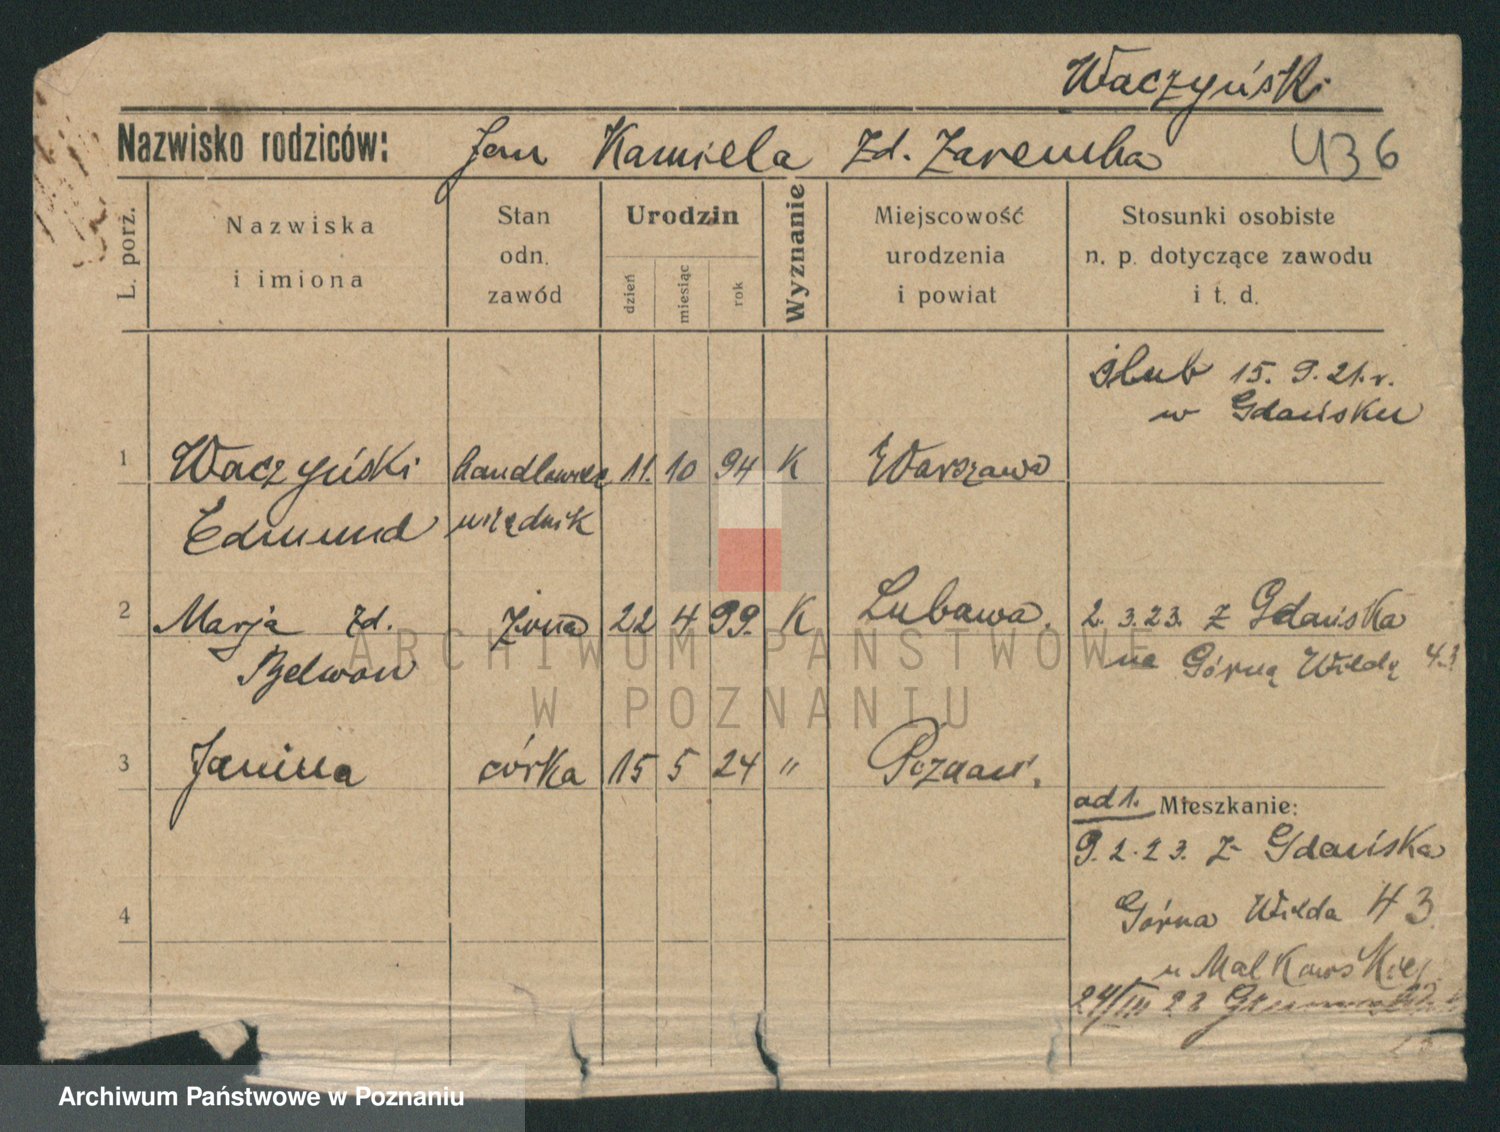 Waczyński
Nazwisko rodziców: Jan Kamiela zd. Zaremba 436
L. porz.
Nazwiska i imiona
Stan odn. zawód
Urodzin
dzień miesiąc rok
Wyznanie
Miejscowość urodzenia i powiat
Stosunki osobiste n. p. dotyczące zawodu i t. d.
ślub 15. 9. 21. r.
w Gdańsku
1 Waczyński handlowiec 11. 10 94 K Warszawa
Edmund urzędnik
2 Marja zd. żona 22 4 99. K Lubawa. 2. 3. 23. z Gdańska
na Górną Wildę 43
3 Janina córka 15 5 24 " Poznań.
ad 1. Mieszkanie:
9. 2. 23. z Gdańska
4 Górna Wilda 43
u Malkowskiej
24/III 23
ARCHIWUM PAŃSTWOWE
W POZNANIU
Archiwum Państwowe w Poznaniu